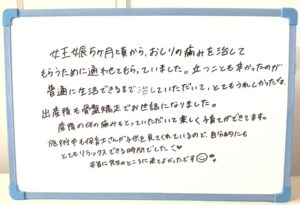 妊娠5ヶ月頃から、おしりの痛みを治して
もらうために通わせてもらっていました。立つことも辛かったのが
普通に生活できるまで治していただいて、とてもうれしかったな、
出産後も骨盤矯正でお世話になりました。
産後の体の痛みもとっていただいて楽しく子育てができてます。
施術中も保育士さんが子供を見てくれているので、自分的にも
とてもリラックスできる時間でした
本当に先生のところに来てよかったです